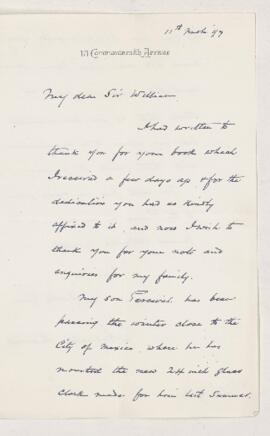 11th March '97
171 Commonwealth Avenue
My dear Sir William.
I had written to
thank you for your book which
I received a few days ago & for the
dedication you had so kindly
affixed to it, and now I wish to
thank you for your note and
enquiries for my family.
My son Percival has been
passing the winter close to the
City of Mexico where he has
mounted the new 24 inch glass
Clark made for him last Summer.